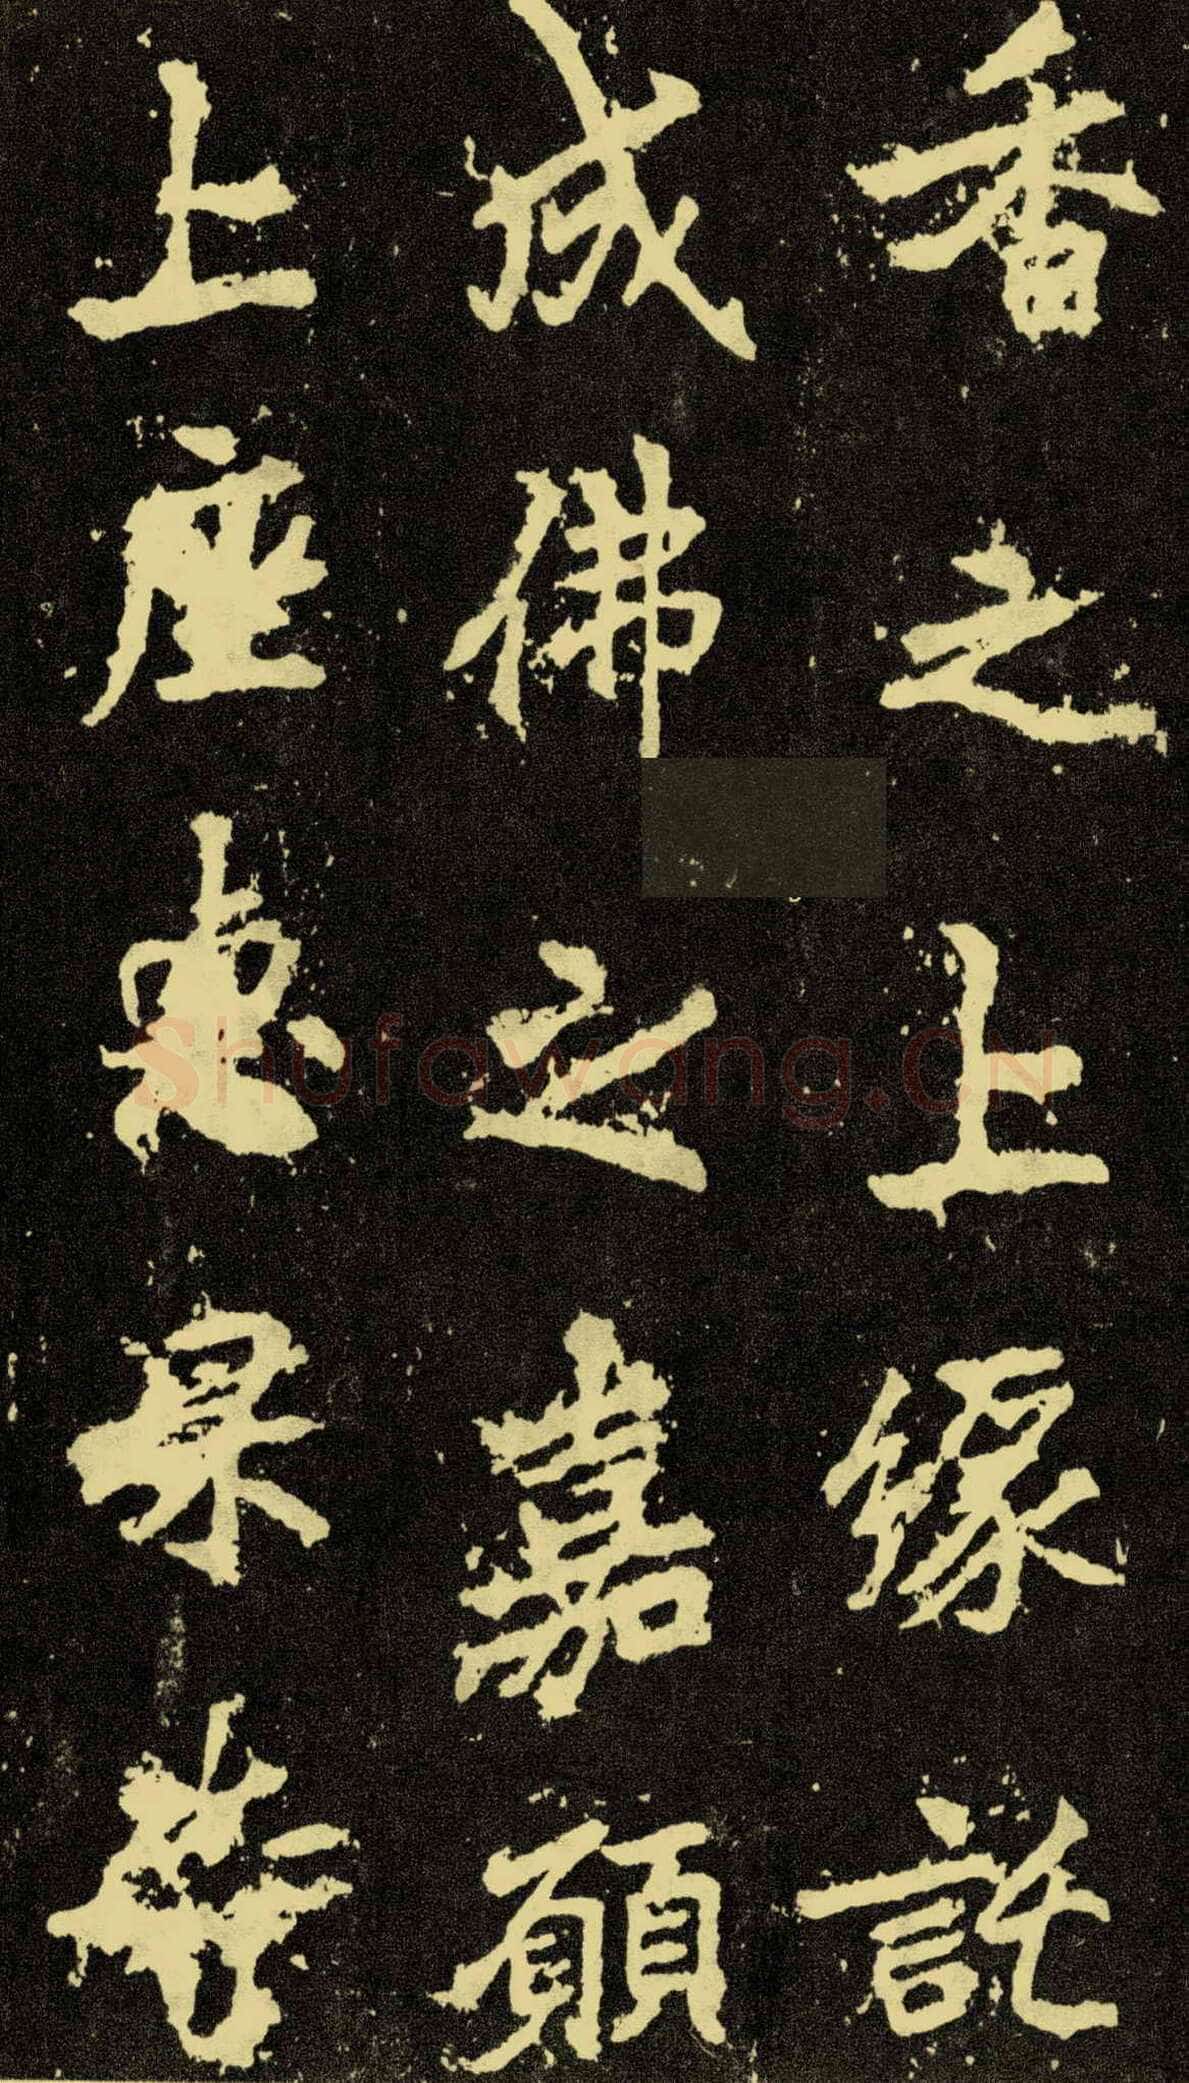 香之上緣託
成佛之嘉願
上座惠杲寺
Shufawang.CN